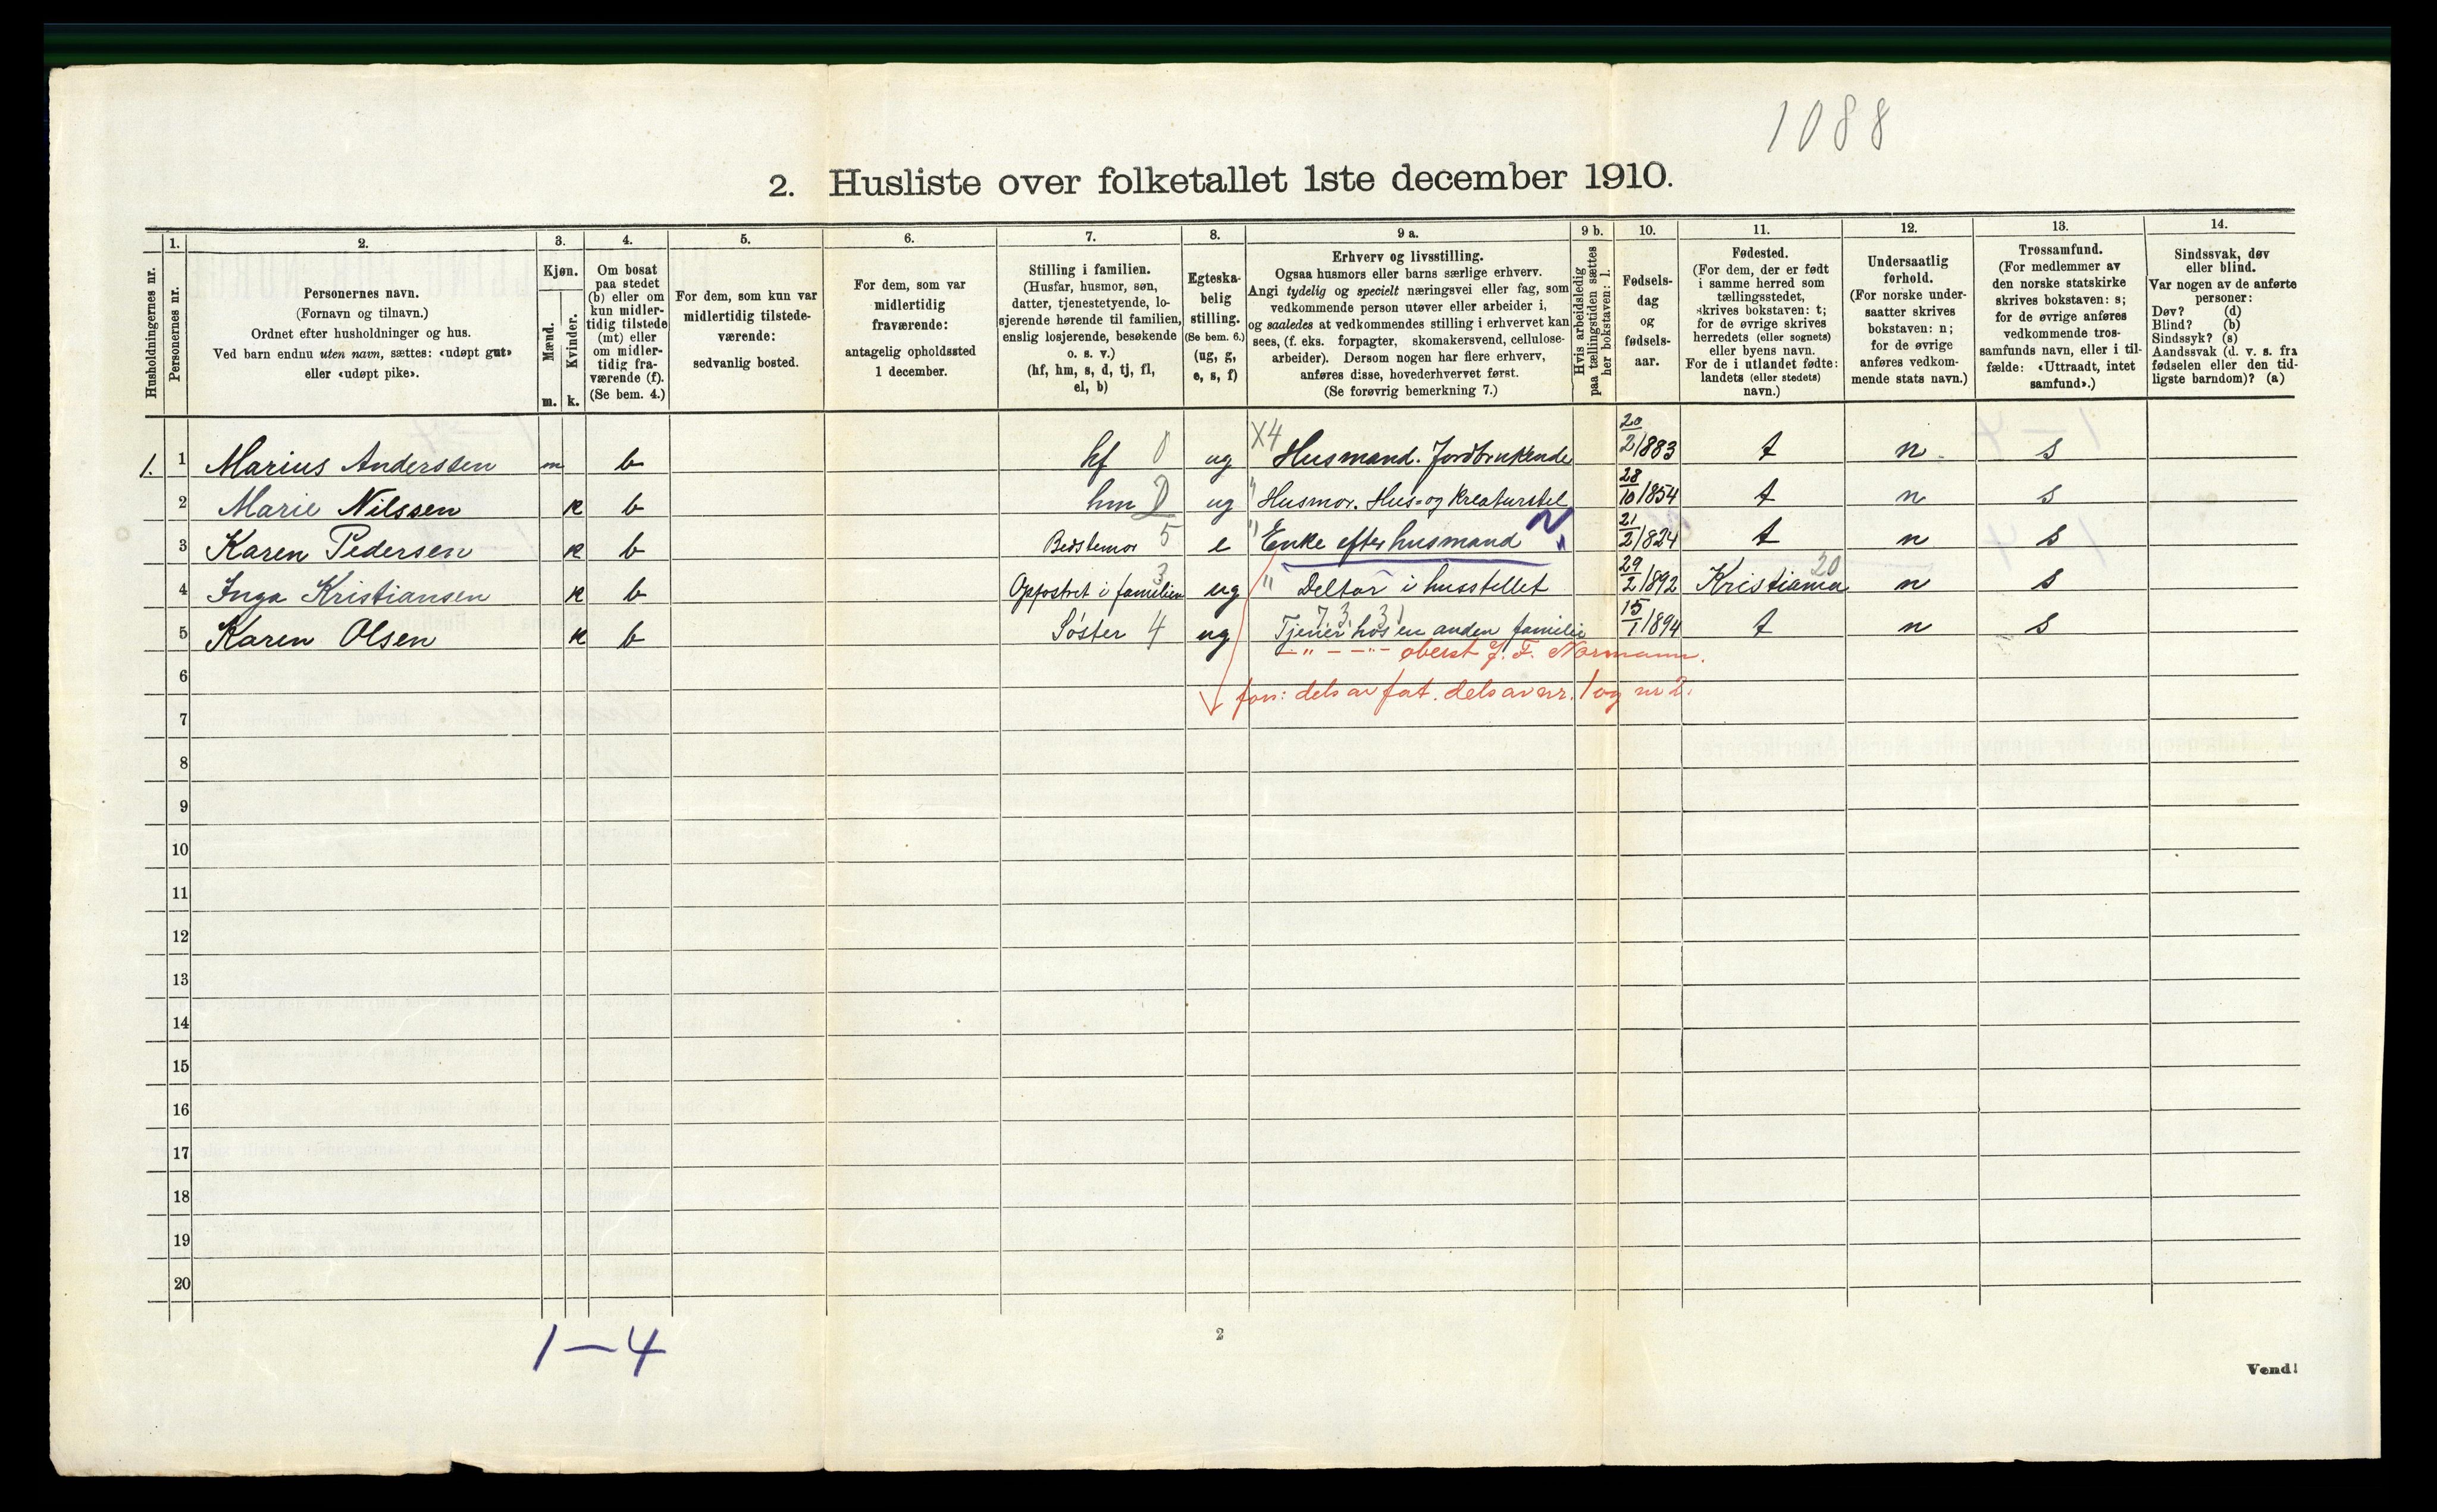 1088
2. Husliste over folketallet 1ste december 1910.
Husholdningernes nr.
1.
Personernes nr.
2.
Personernes navn.
(Fornavn og tilnavn.)
Ordnet efter husholdninger og hus.
Ved barn endnu uten navn, sættes: «udøpt gut»
eller «udøpt pike».
3.
Kjøn.
Mænd.
Kvinder.
m. k.
4.
Om bosat
paa stedet
(b) eller om
kun midler-
tidig tilstede
(mt) eller
om midler-
tidig fra-
værende (f).
(Se bem. 4.)
5.
For dem, som kun var
midlertidig tilstede-
værende:
sedvanlig bosted.
6.
For dem, som var
midlertidig
fraværende:
antagelig opholdssted
1 december.
7.
Stilling i familien.
(Husfar, husmor, søn,
datter, tjenestetyende, lo-
sjerende hørende til familien,
enslig losjerende, besøkende
o. s. v.)
(hf, hm, s, d, tj, fl,
el, b)
8.
Egteska-
belig
stilling.
(Se bem. 6.)
(ug, g,
e, s, f)
9 a.
Erhverv og livsstilling.
Ogsaa husmors eller barns særlige erhverv.
Angi tydelig og specielt næringsvei eller fag, som
vedkommende person utøver eller arbeider i,
og saaledes at vedkommendes stilling i erhvervet kan
sees, (f. eks. forpagter, skomakersvend, cellulose-
arbeider). Dersom nogen har flere erhverv,
anføres disse, hovederhvervet først.
(Se forøvrig bemerkning 7.)
9 b.
Hvis arbeidsledig
paa tællingstiden sættes
her bokstaven: l.
10.
Fødsels-
dag
og
fødsels-
aar.
11.
Fødested.
(For dem, der er født
i samme herred som
tællingsstedet,
skrives bokstaven: t;
for de øvrige skrives
herredets (eller sognets)
eller byens navn.
For de i utlandet fødte:
landets (eller stedets)
navn.)
12.
Undersaatlig
forhold.
(For norske under-
saatter skrives
bokstaven: n;
for de øvrige
anføres vedkom-
mende stats navn.)
13.
Trossamfund.
(For medlemmer av
den norske statskirke
skrives bokstaven: s;
for de øvrige anføres
vedkommende tros-
samfunds navn, eller i til-
fælde: «Uttraadt, intet
samfund».)
14.
Sindssvak, døv
eller blind.
Var nogen av de anførte
personer:
Døv? (d)
Blind? (b)
Sindssyk? (s)
Aandssvak (d. v. s. fra
fødselen eller den tid-
ligste barndom)? (a)
1. 1 Marius Anderssen m b hf 0 ug X4 Husmand. Jordbrukende 20/2 1883 t n s
2 Marie Nilssen k b hm ug " Husmor. Hus- og kreaturstel 28/10 1854 t n s
3 Karen Pedersen k b Bedstemor 5 e " Enke efter husmand 21/2 1824 t n s
4 Inga Kristiansen k b Opfostret i familien 3 ug " Deltar i husstellet 29/2 1892 Kristiania 20 n s
5 Karen Olsen k b Søster 4 ug Tjener hos en anden familie 15/1 1894 t n s
— " — — " — oberst J. F. Normann.
6
fors: dels av fat. dels av nr. 1 og nr 2.
7
8
9
10
11
12
13
14
15
16
17
18
19
20
1—4
2
Vend!